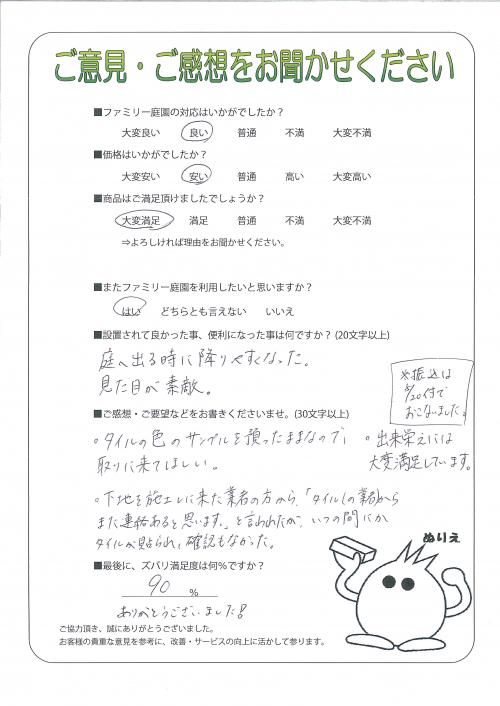 ご意見・ご感想をお聞かせください
■ファミリー庭園の対応はいかがでしたか？
大変良い 良い 普通 不満 大変不満
■価格はいかがでしたか？
大変安い 安い 普通 高い 大変高い
■商品はご満足頂けましたでしょうか？
大変満足 満足 普通 不満 大変不満
⇒よろしければ理由をお聞かせください。
■またファミリー庭園を利用したいと思いますか？
はい どちらとも言えない いいえ
■設置されて良かった事、便利になった事は何ですか？(20文字以上)
庭へ出る時に降りやすくなった。
見た目が素敵。
※振込は
5/20付で
おこないました。
■ご感想・ご要望などをお書きくださいませ。(30文字以上)
・タイルの色のサンプルを預ったままなので
取りに来てほしい。
・出来栄えには
大変満足しています。
・下地を施工しに来た業者の方から、「タイルの業者から
また連絡あると思います。」と言われたが、いつの間にか
タイルが貼られ、確認もなかった。
■最後に、ズバリ満足度は何％ですか？
90 %
ありがとうございました!
ぬりえ
ご協力頂き、誠にありがとうございました。
お客様の貴重な意見を参考に、改善・サービスの向上に活かして参ります。